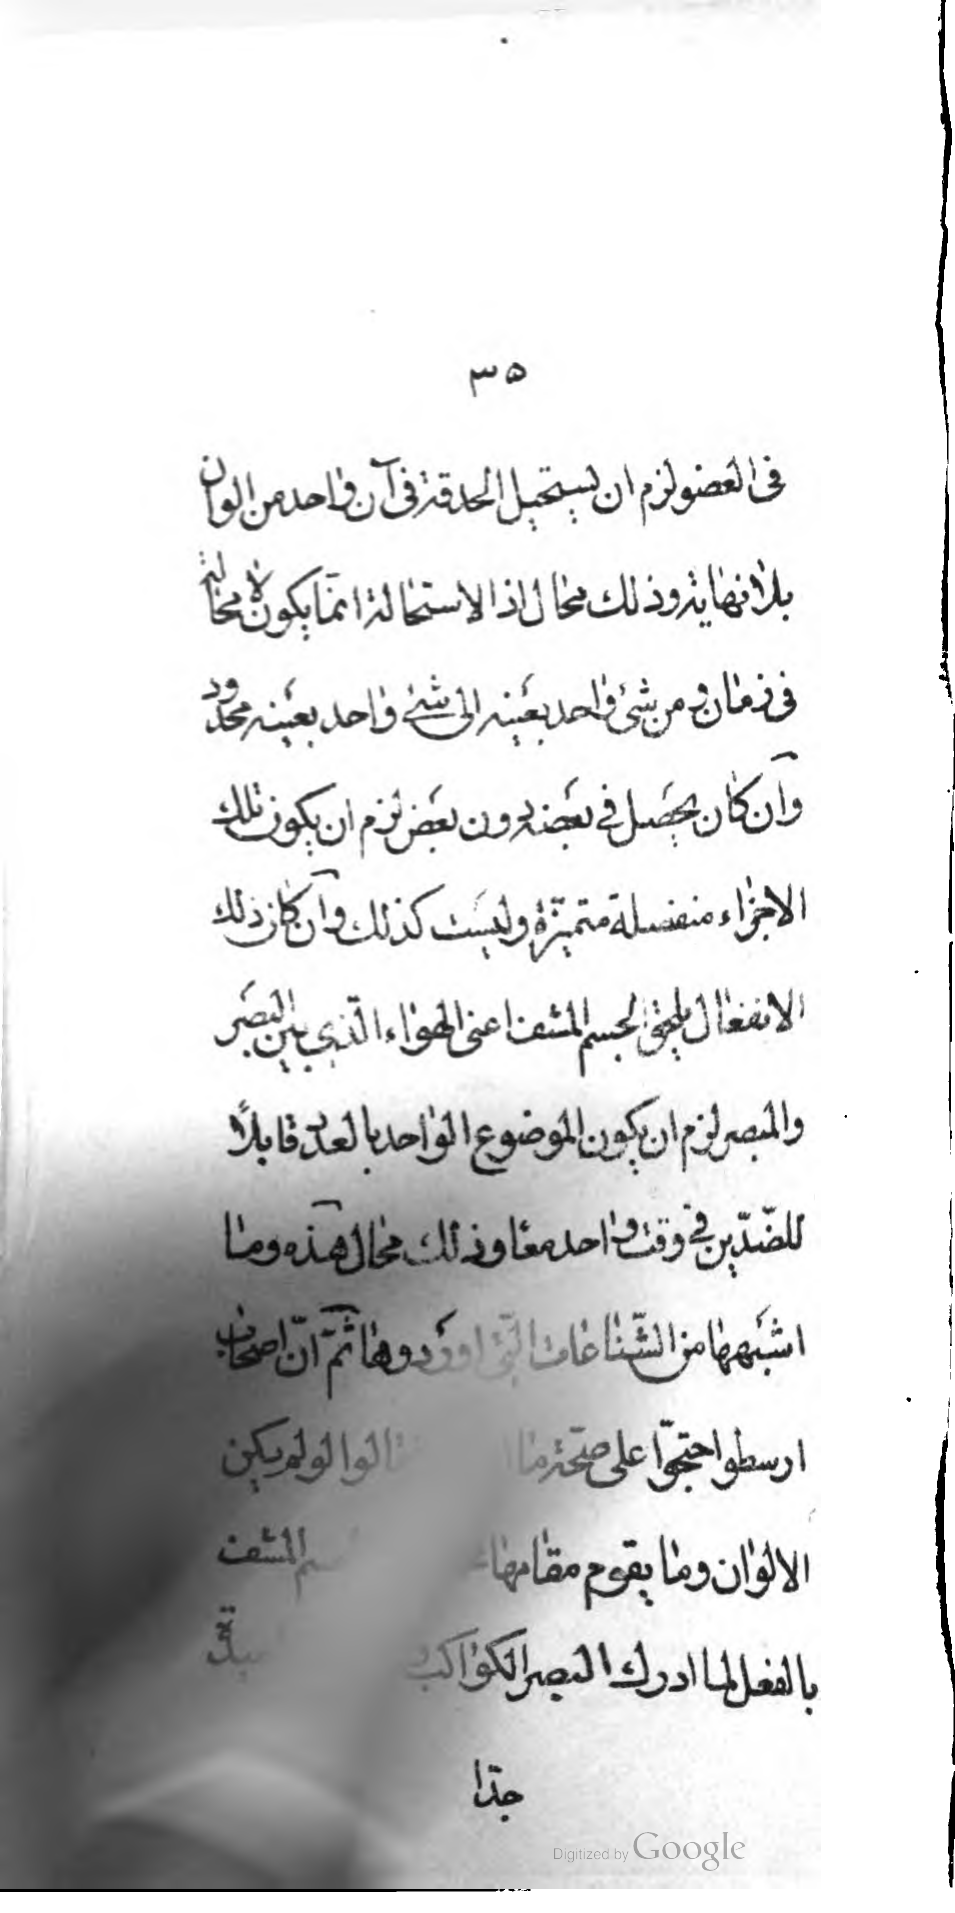 ٣٥
فى العضو لزم ان يستحيل الحدقة فى آن واحد من الوان
بلا نهاية وذلك محال اذ الاستحالة انما يكون لا محالة
فى زمان و من شئ واحد بعينه الى شئ واحد بعينه محدود
وان كان يحصل فى بعضه دون بعض لزم ان يكون تلك
الاجزاء منفصلة متميزة وليست كذلك وان كان ذلك
الانفعال يلحق الجسم المشف اعنى الهواء الذى بين البصر
والمبصر لزم ان يكون الموضوع الواحد بالعدد قابلاً
للضدّين فى وقت واحد معا وذلك محال هذه وما
اشبهها من الشناعات التى اوردوها ثمّ انّ اصحاب
ارسطو احتجّوا على صحّة قالوا لو لم يكن
الالوان وما يقوم مقامها المشف
بالفعل لما ادرك البصر الكواكب
جدّا
Digitized by Google